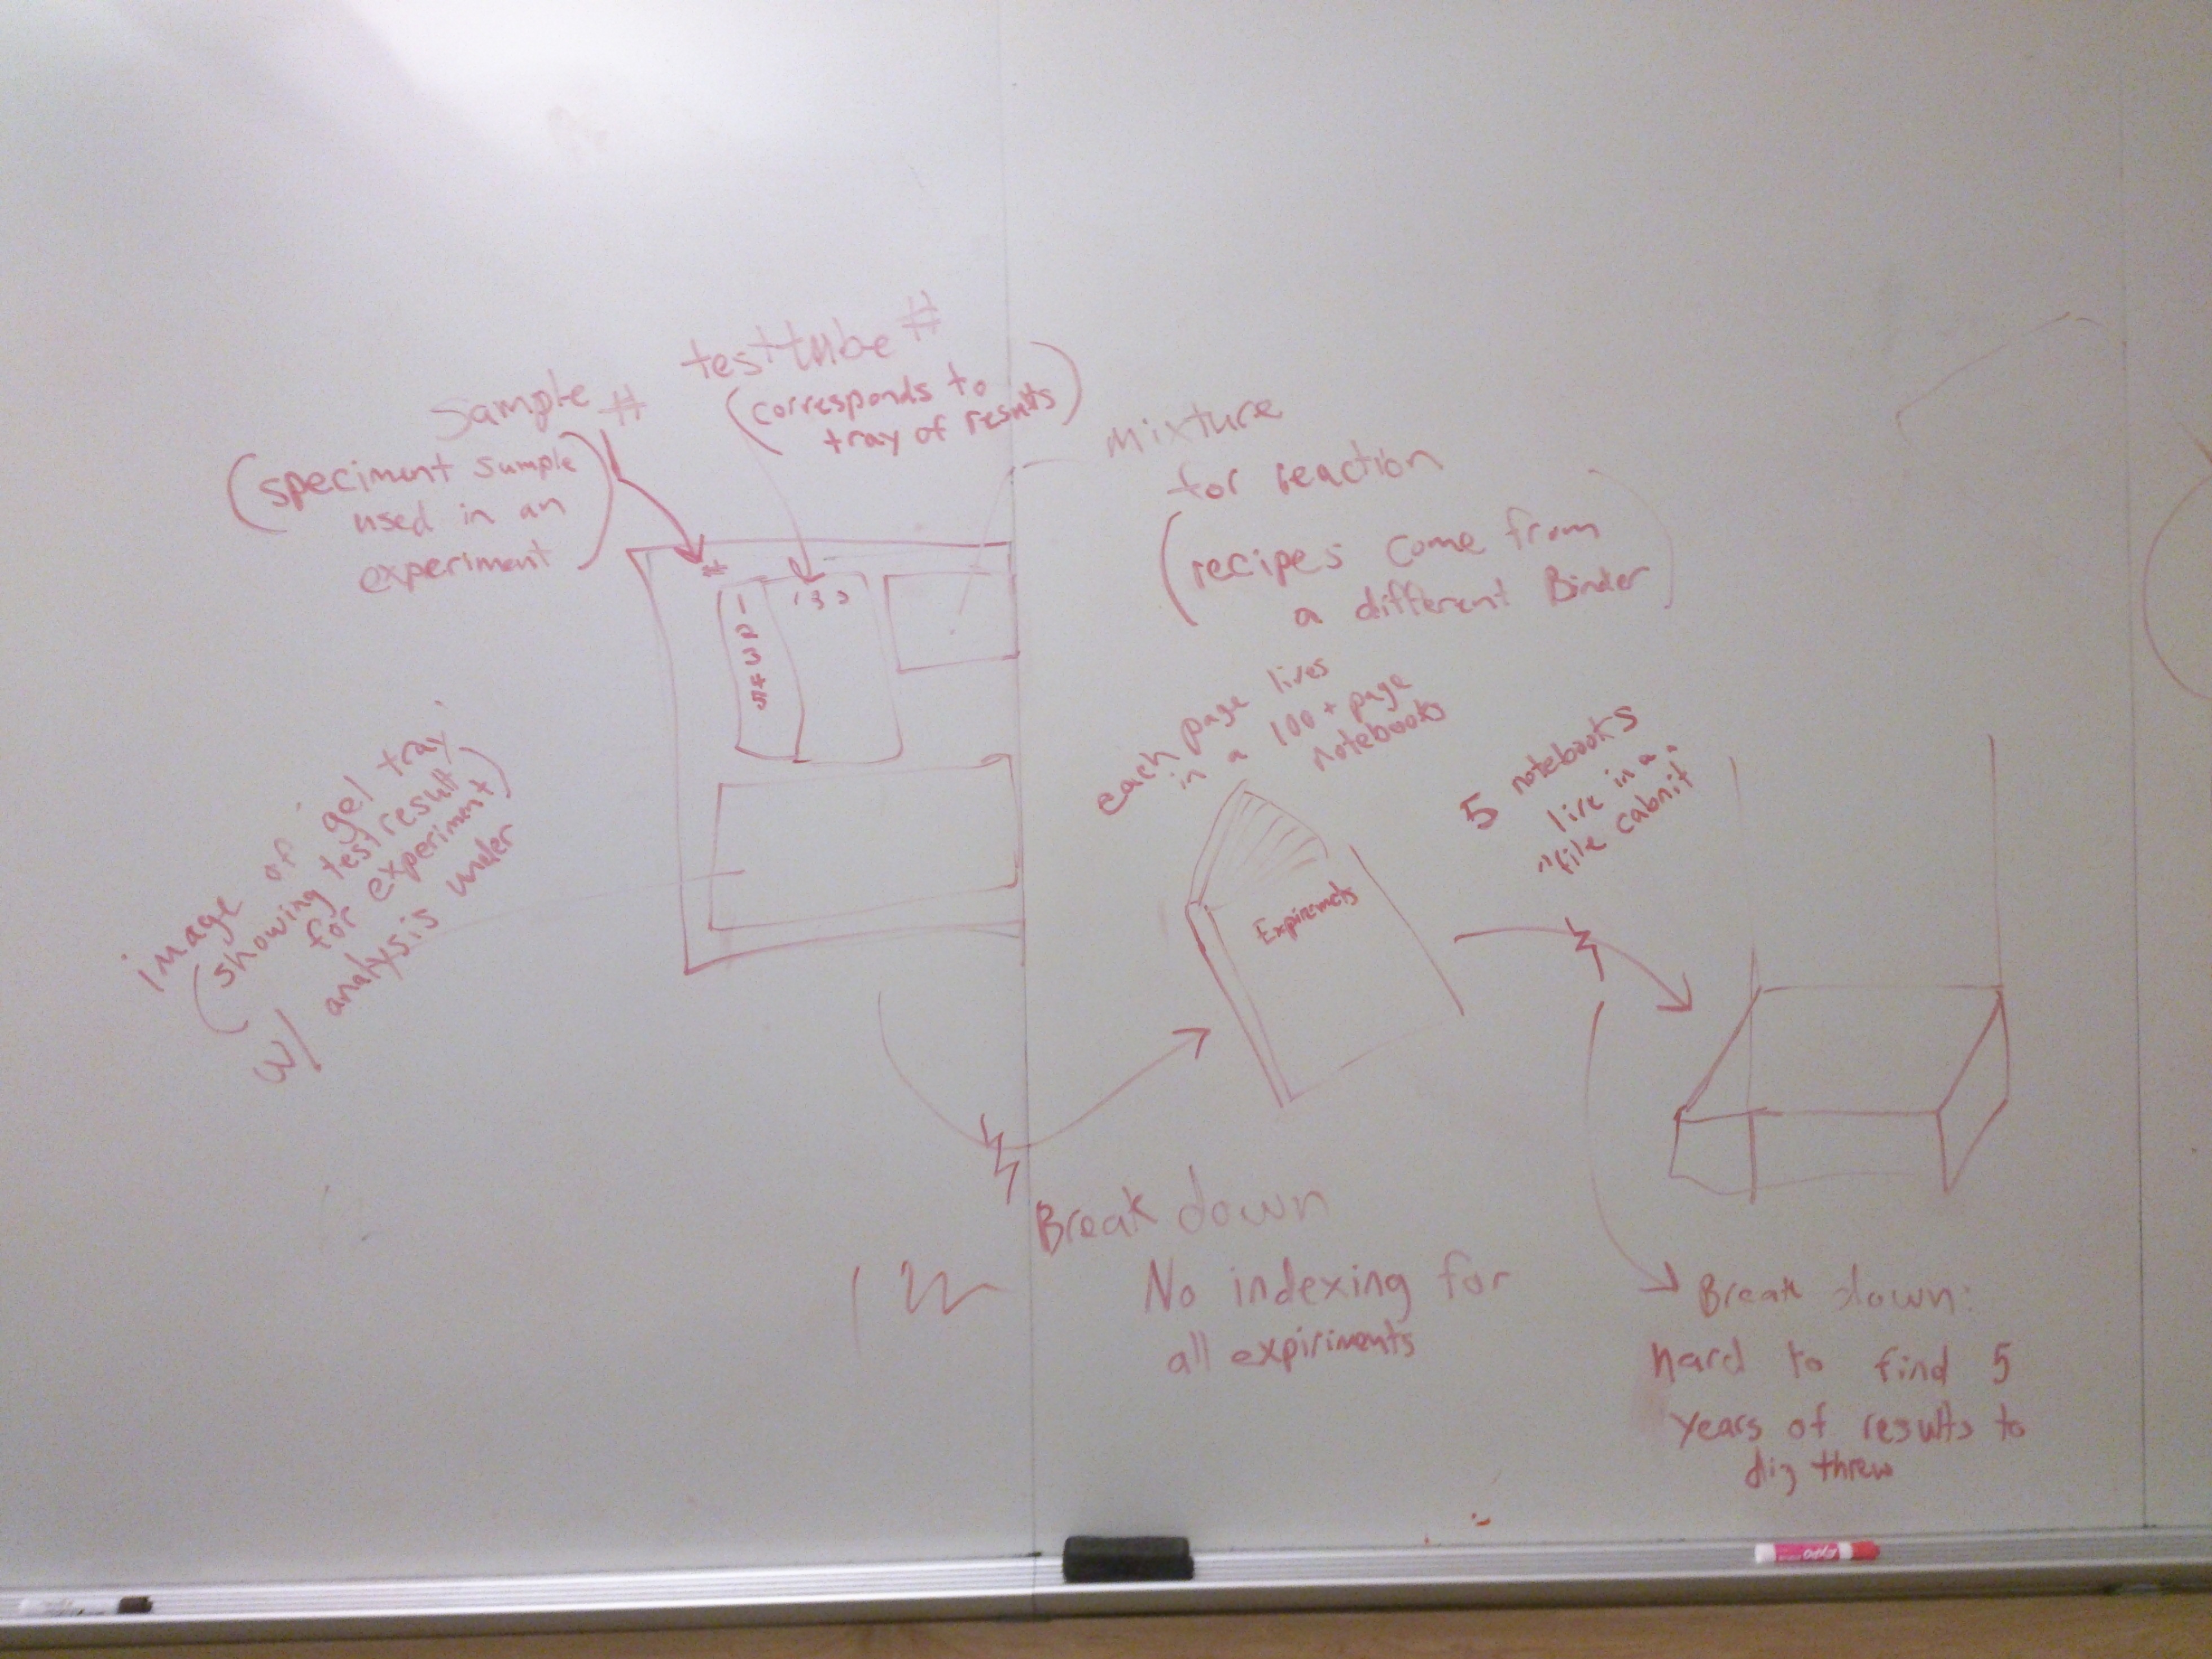 testtube #
(corresponds to
tray of results)
Sample #
(speciment sample
used in an
experiment)
mixture
for reaction
(recipes come from
a different Binder)
#
1
2
3
4
5
each page lives
in a 100+ page
notebooks
5 notebooks
live in a
"file cabnit"
image of gel tray
(showing test result
for experiment)
w/ analysis under
Expirements
Break down
No indexing for
all expiriments
Break down:
hard to find 5
years of results to
dig threw
EXPO